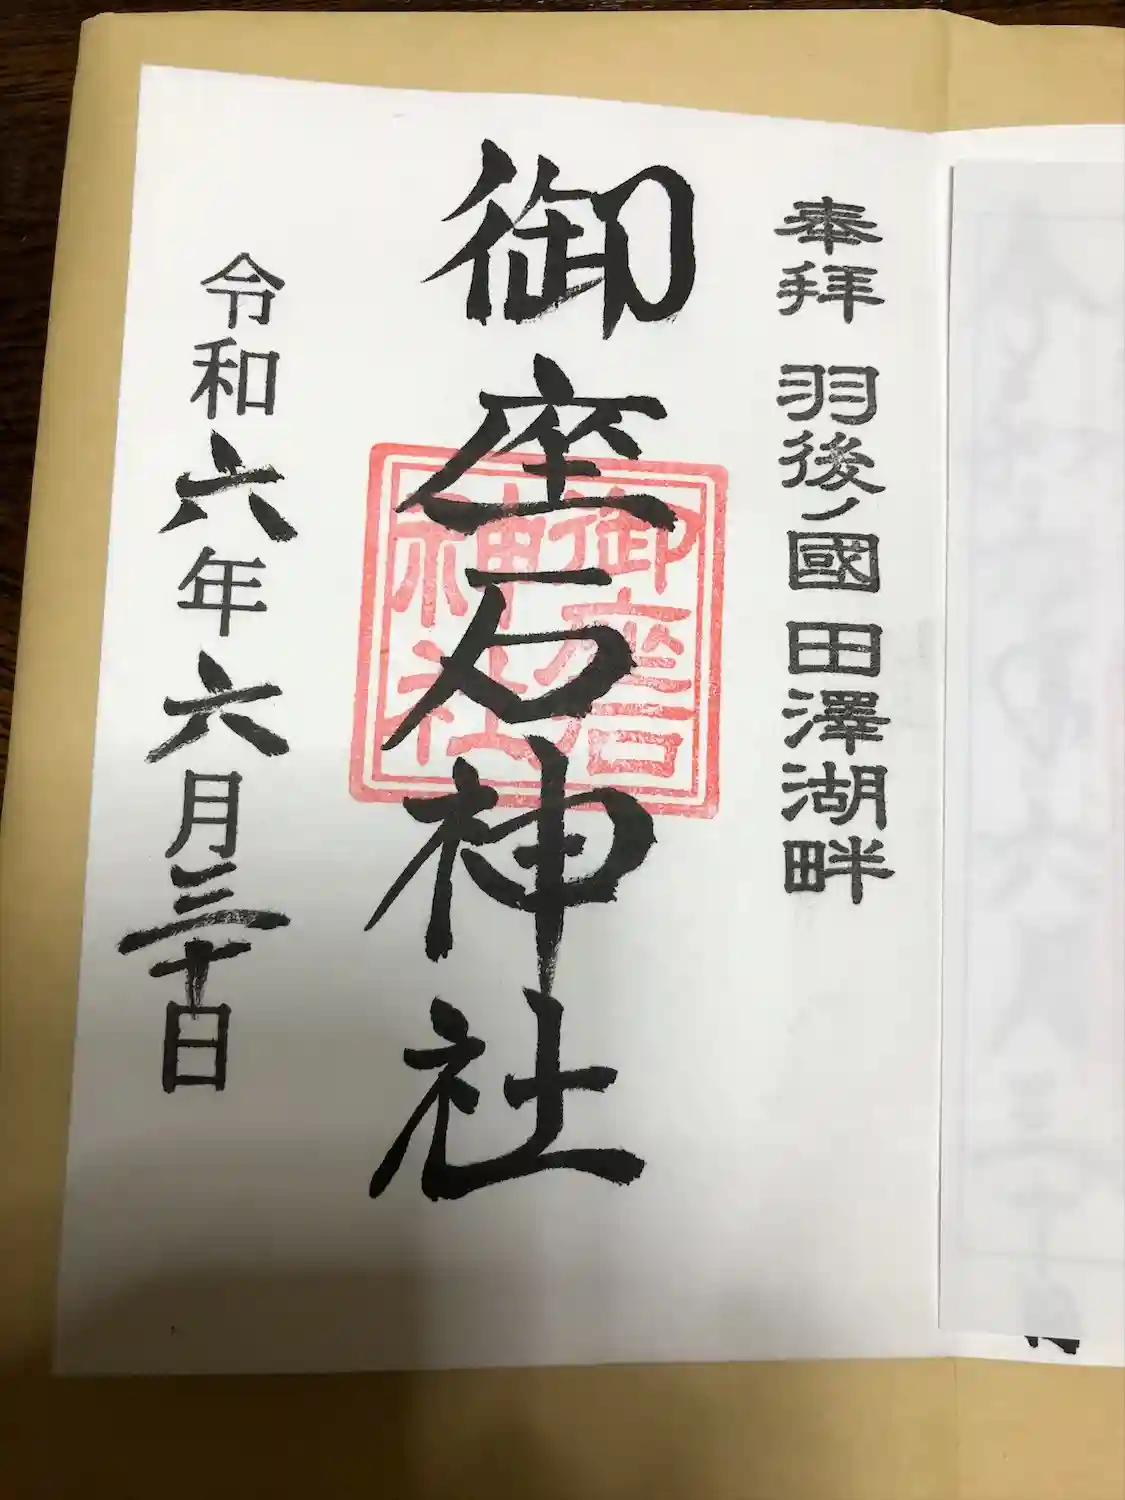 奉拝 羽後ノ國 田澤湖畔
御座石神社
御座石
神社
令和六年六月三十日